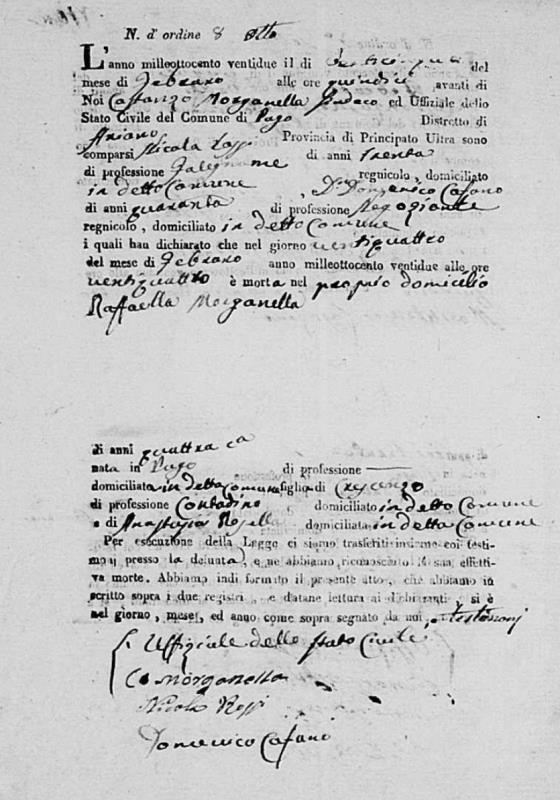 N. d'ordine 8 otto
L'anno milleottocento ventidue il dì venticinque del
mese di Febraro alle ore quindici avanti di
Noi Costanzo Morganella Sindaco ed Uffiziale dello
Stato Civile del Comune di Pago Distretto di
Ariano Provincia di Principato Ultra sono
comparsi Nicola di anni trenta
di professione Falegname regnicolo, domiciliato
in detto Comune, Dn Domenico Cafano
di anni quaranta di professione Negoziante
regnicolo, domiciliato in detto Comune
i quali han dichiarato che nel giorno ventiquattro
del mese di Febraro anno milleottocento ventidue alle ore
ventiquattro è morta nel proprio domicilio
Raffaella Morganella
di anni quattro
nata in Pago di professione —
domiciliata in detto Comune figlia di Crescenzo
di professione Contadino domiciliato in detto Comune
e di Anastasia Rosella domiciliata in detto Comune
Per esecuzione della Legge ci siamo trasferiti insieme coi testi-
monj presso la defunta, e ne abbiamo riconosciuto la sua effetti-
va morte. Abbiamo indi formato il presente atto, che abbiamo in
scritto sopra i due registri, e datane lettura ai dichiaranti, si è
nel giorno, mese, ed anno come sopra segnato da noi, e testimonj
L'Uffiziale dello Stato Civile
C. Morganella
Nicola Rossi
Domenico Cafano